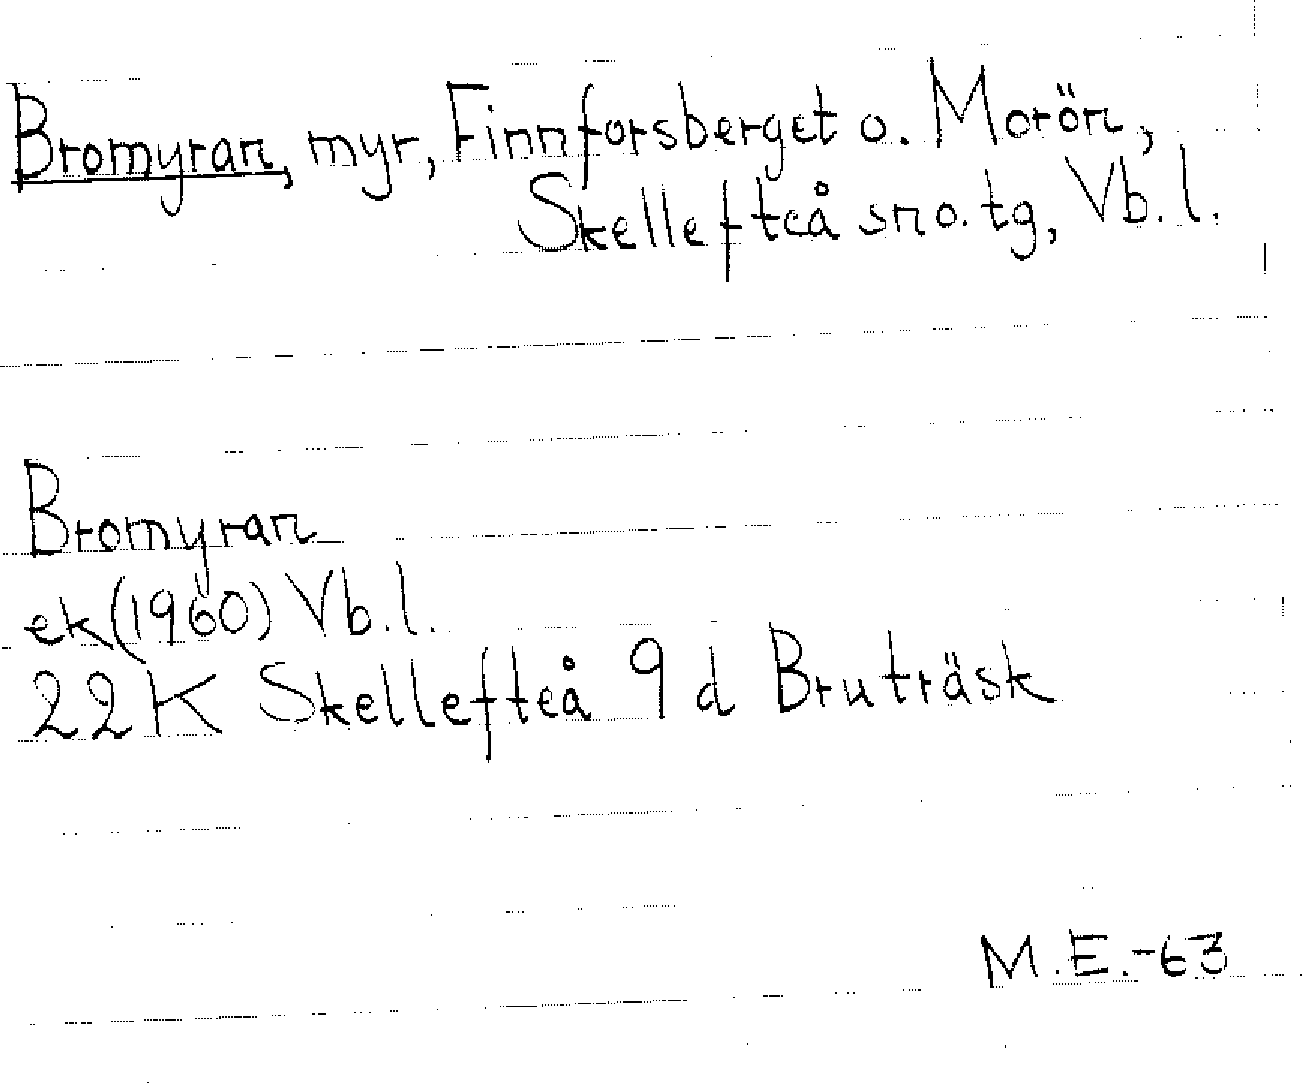 Bromyran, myr, Finnforsberget o. Morön,
Skellefteå sno. tg, Vb. l.
Bromyran
ek (1960) Vb. l.
22 K Skellefteå 9 d Bruträsk
M.E.-63